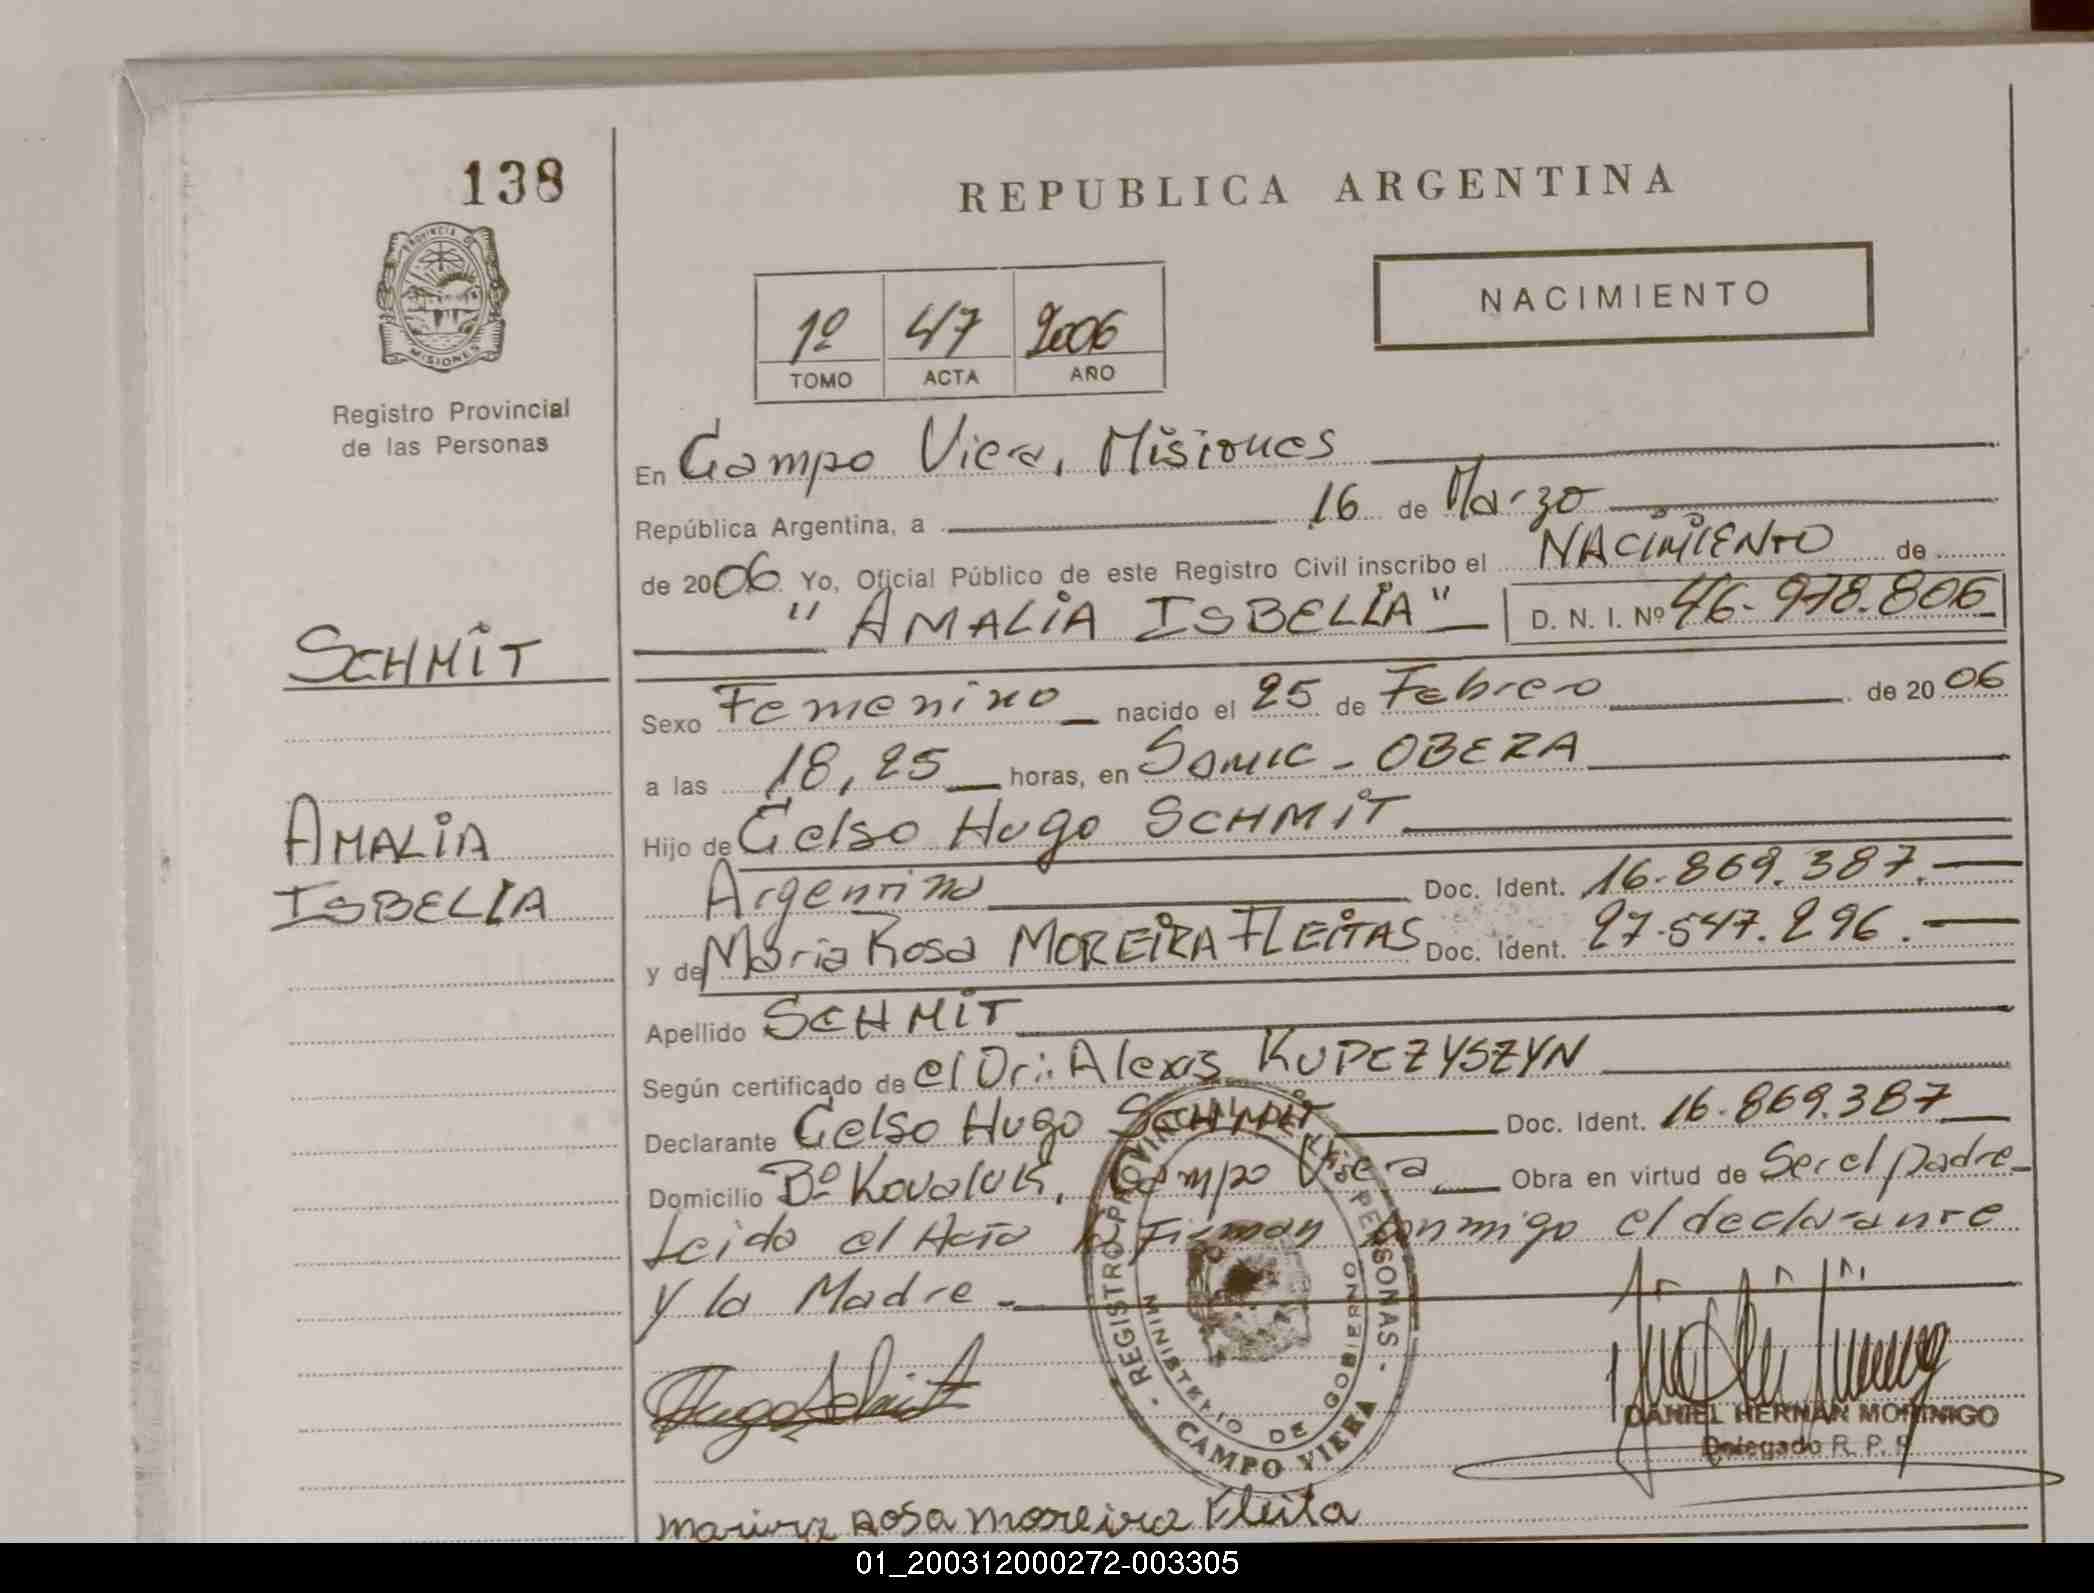 138
PROVINCIA DE
MISIONES
Registro Provincial
de las Personas
REPUBLICA ARGENTINA
NACIMIENTO
1º 47 2006
TOMO ACTA AÑO
En Campo Viera, Misiones
República Argentina, a 16 de Marzo
de 2006 Yo, Oficial Público de este Registro Civil inscribo el NACIMIENTO de
"AMALIA ISBELIA" D. N. I. Nº 46.978.806
SCHMIT
Sexo Femenino nacido el 25 de Febrero de 2006
a las 18,25 horas, en Samic - OBERA
AMALIA
ISBELIA
Hijo de Celso Hugo SCHMIT
Argentino Doc. Ident. 16.869.387.
y de Maria Rosa MOREIRA FLEITAS Doc. Ident. 27.547.296.
Apellido SCHMIT
Según certificado de el Dr.: Alexis KUPCZYSZYN
Declarante Celso Hugo SCHMIT Doc. Ident. 16.869.387
Domicilio Bº Kovaluk, Campo Viera, Obra en virtud de Ser el padre
Leido el Acta la Firman conmigo el declarante
y la Madre -
REGISTRO PROVINCIAL DE PERSONAS
MINISTERIO DE GOBIERNO
CAMPO VIERA
Hugo Schmit
DANIEL HERNAN MORINIGO
Delegado R. P. P.
Rosa moreira Fleita
01_200312000272-003305